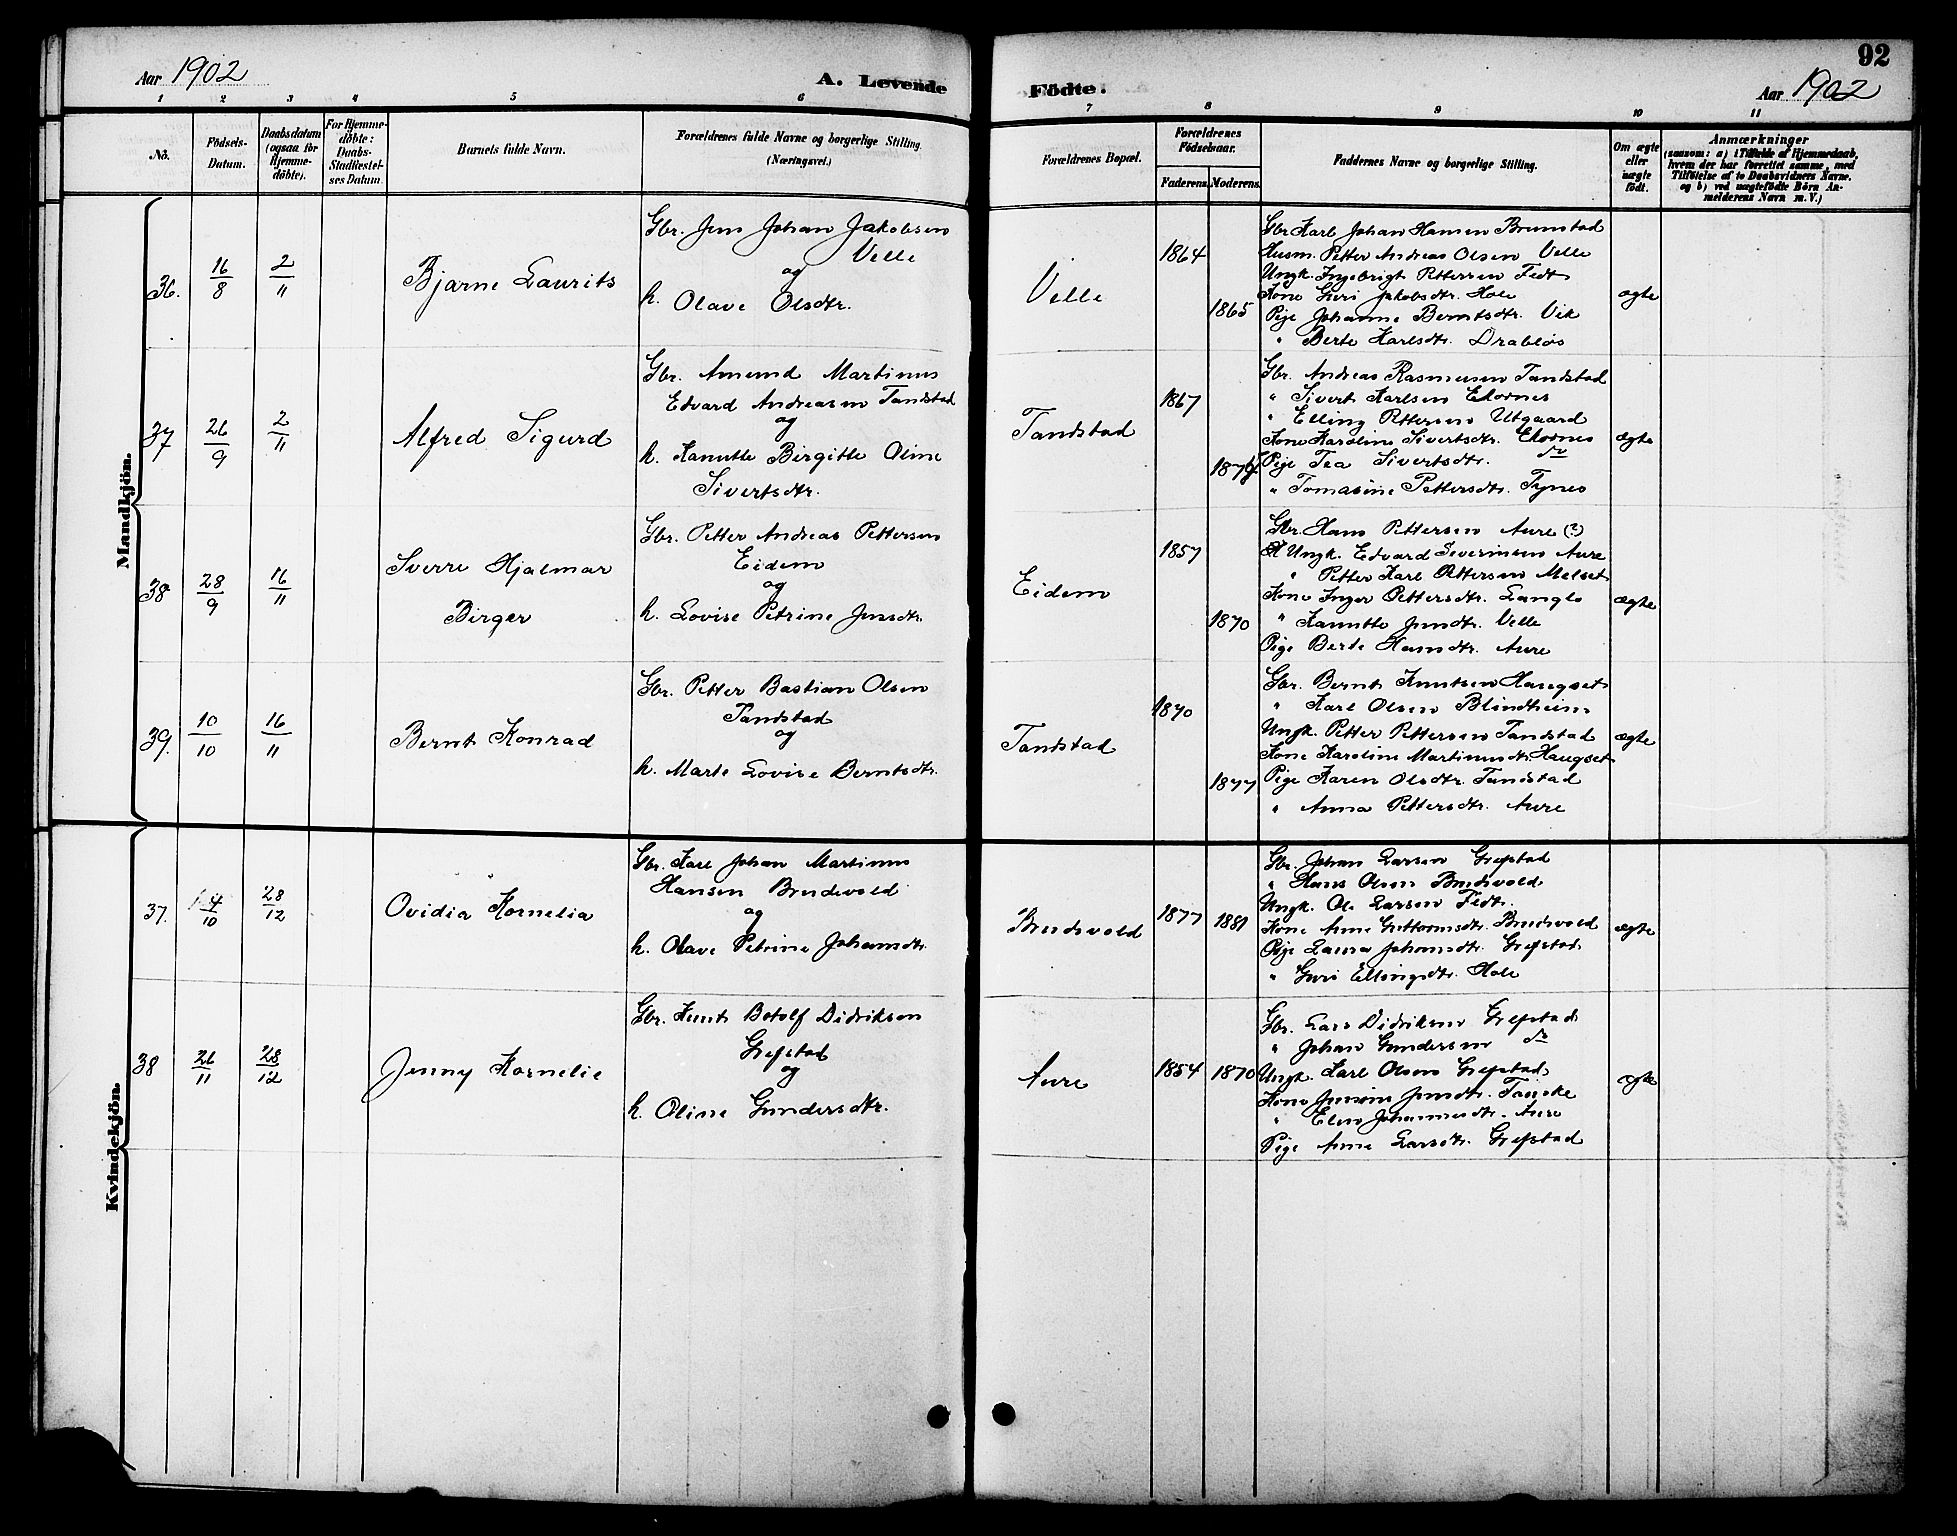 92
Aar 1902
A. Levende Födte.
Aar 1902
1 2 3 4 5 6 7 8 9 10 11
No.
Födsels-Datum.
Daabsdatum (ogsaa for Hjemme-döbte).
For Hjemme-döbte: Daabs-Stadfæstel-ses Datum.
Barnets fulde Navn.
Forældrenes fulde Navne og borgerlige Stilling.
(Næringsvei.)
Forældrenes Bopæl.
Forældrenes Födselsaar.
Faderens. Moderens.
Faddernes Navne og borgerlige Stilling.
Om ægte eller uægte födt.
Anmærkninger
(saasom: a) i Tilfælde af Hjemmedaab,
hvem der har forrettet samme, med
Tilföielse af to Daabsvidners Navne,
og b) ved uægtefödte Börn An-
melderens Navn m. V.)
Mandkjön.
36. 16/8 2/11 Bjarne Laurits
Gbr. Jens Johan Jakobsen
Velle
og
h. Olave Olsdtr.
Velle
1864
1865
Gbr. Karl Johan Hansen Brunstad
Husm. Petter Andreas Olsen Velle
Ungk. Ingebrigt Pettersen Fedt
Kone Guri Jakobsdtr. Hole
Pige Johanne Berntsdtr. Vik
" Berte Karlsdtr. Drabløs
ægte
37 26/9 2/11 Alfred Sigurd
Gbr. Amund Martinus
Edvard Andreasen Tandstad
og
h. Kanutte Birgitte Oline
Sivertsdtr.
Tandstad
1867
Gbr. Andreas Rasmussen Tandstad
" Sivert Karlsen Ekornes
" Elling Pettersen Utgaard
Kone Karoline Sivertsdtr. Ekornes
Pige Tea Sivertsdtr. do
" Tomasine Pettersdtr. Tynes
ægte
38 28/9 16/11 Sverre Hjalmar
Birger
Gbr. Petter Andreas Pettersen
Eidem
og
h. Lovise Petrine Jensdtr.
Eidem
1857
1870
Gbr. Hans Pettersen Aure (?)
Ungk. Edvard Severinsen Aure
" Petter Karl Pettersen Melset
Kone Inger Pettersdtr. Langlo
" Kanutte Jensdtr. Velle
Pige Berte Hansdtr. Aure
ægte
39. 10/10 16/11 Bernt Konrad
Gbr. Petter Bastian Olsen
Tandstad
og
h. Marte Lovise Berntsdtr.
Tandstad
1870
1877
Gbr. Bernt Knutsen Haugset
" Karl Olsen Blindheim
Ungk. Petter Pettersen Tandstad
Kone Karoline Martinusdtr. Haugset
Pige Karen Olsdtr. Tandstad
" Anna Pettersdtr. Aure
ægte
Kvindekjön.
37. 4/10 28/12 Ovidia Kornelia
Gbr. Karl Johan Martinus
Hansen Brudevold
og
h. Olave Petrine Johansdtr.
Brudevold
1877 1881
Gbr. Johan Larsen Grefstad
" Hans Olsen Brudevold
Ungk. Ole Larsen Fedt.
Kone Anne Guttormsdtr. Brudevold
Pige Laura Johansdtr. Grefstad
" Guri Ellingsdtr. Hole
ægte
38 26/11 28/12 Jenny Kornelie
Gbr. Knut Botolf Didriksen
Grefstad
og
h. Oline Gundersdtr.
Aure
1854 1870
Gbr. Lars Didriksen Grefstad
" Johan Gundersen do
Ungk. Karl Olsen Grefstad
Kone Jensine Jensdtr.
" Elen Johannesdtr. Aure
Pige Anne Larsdtr. Grefstad
ægte